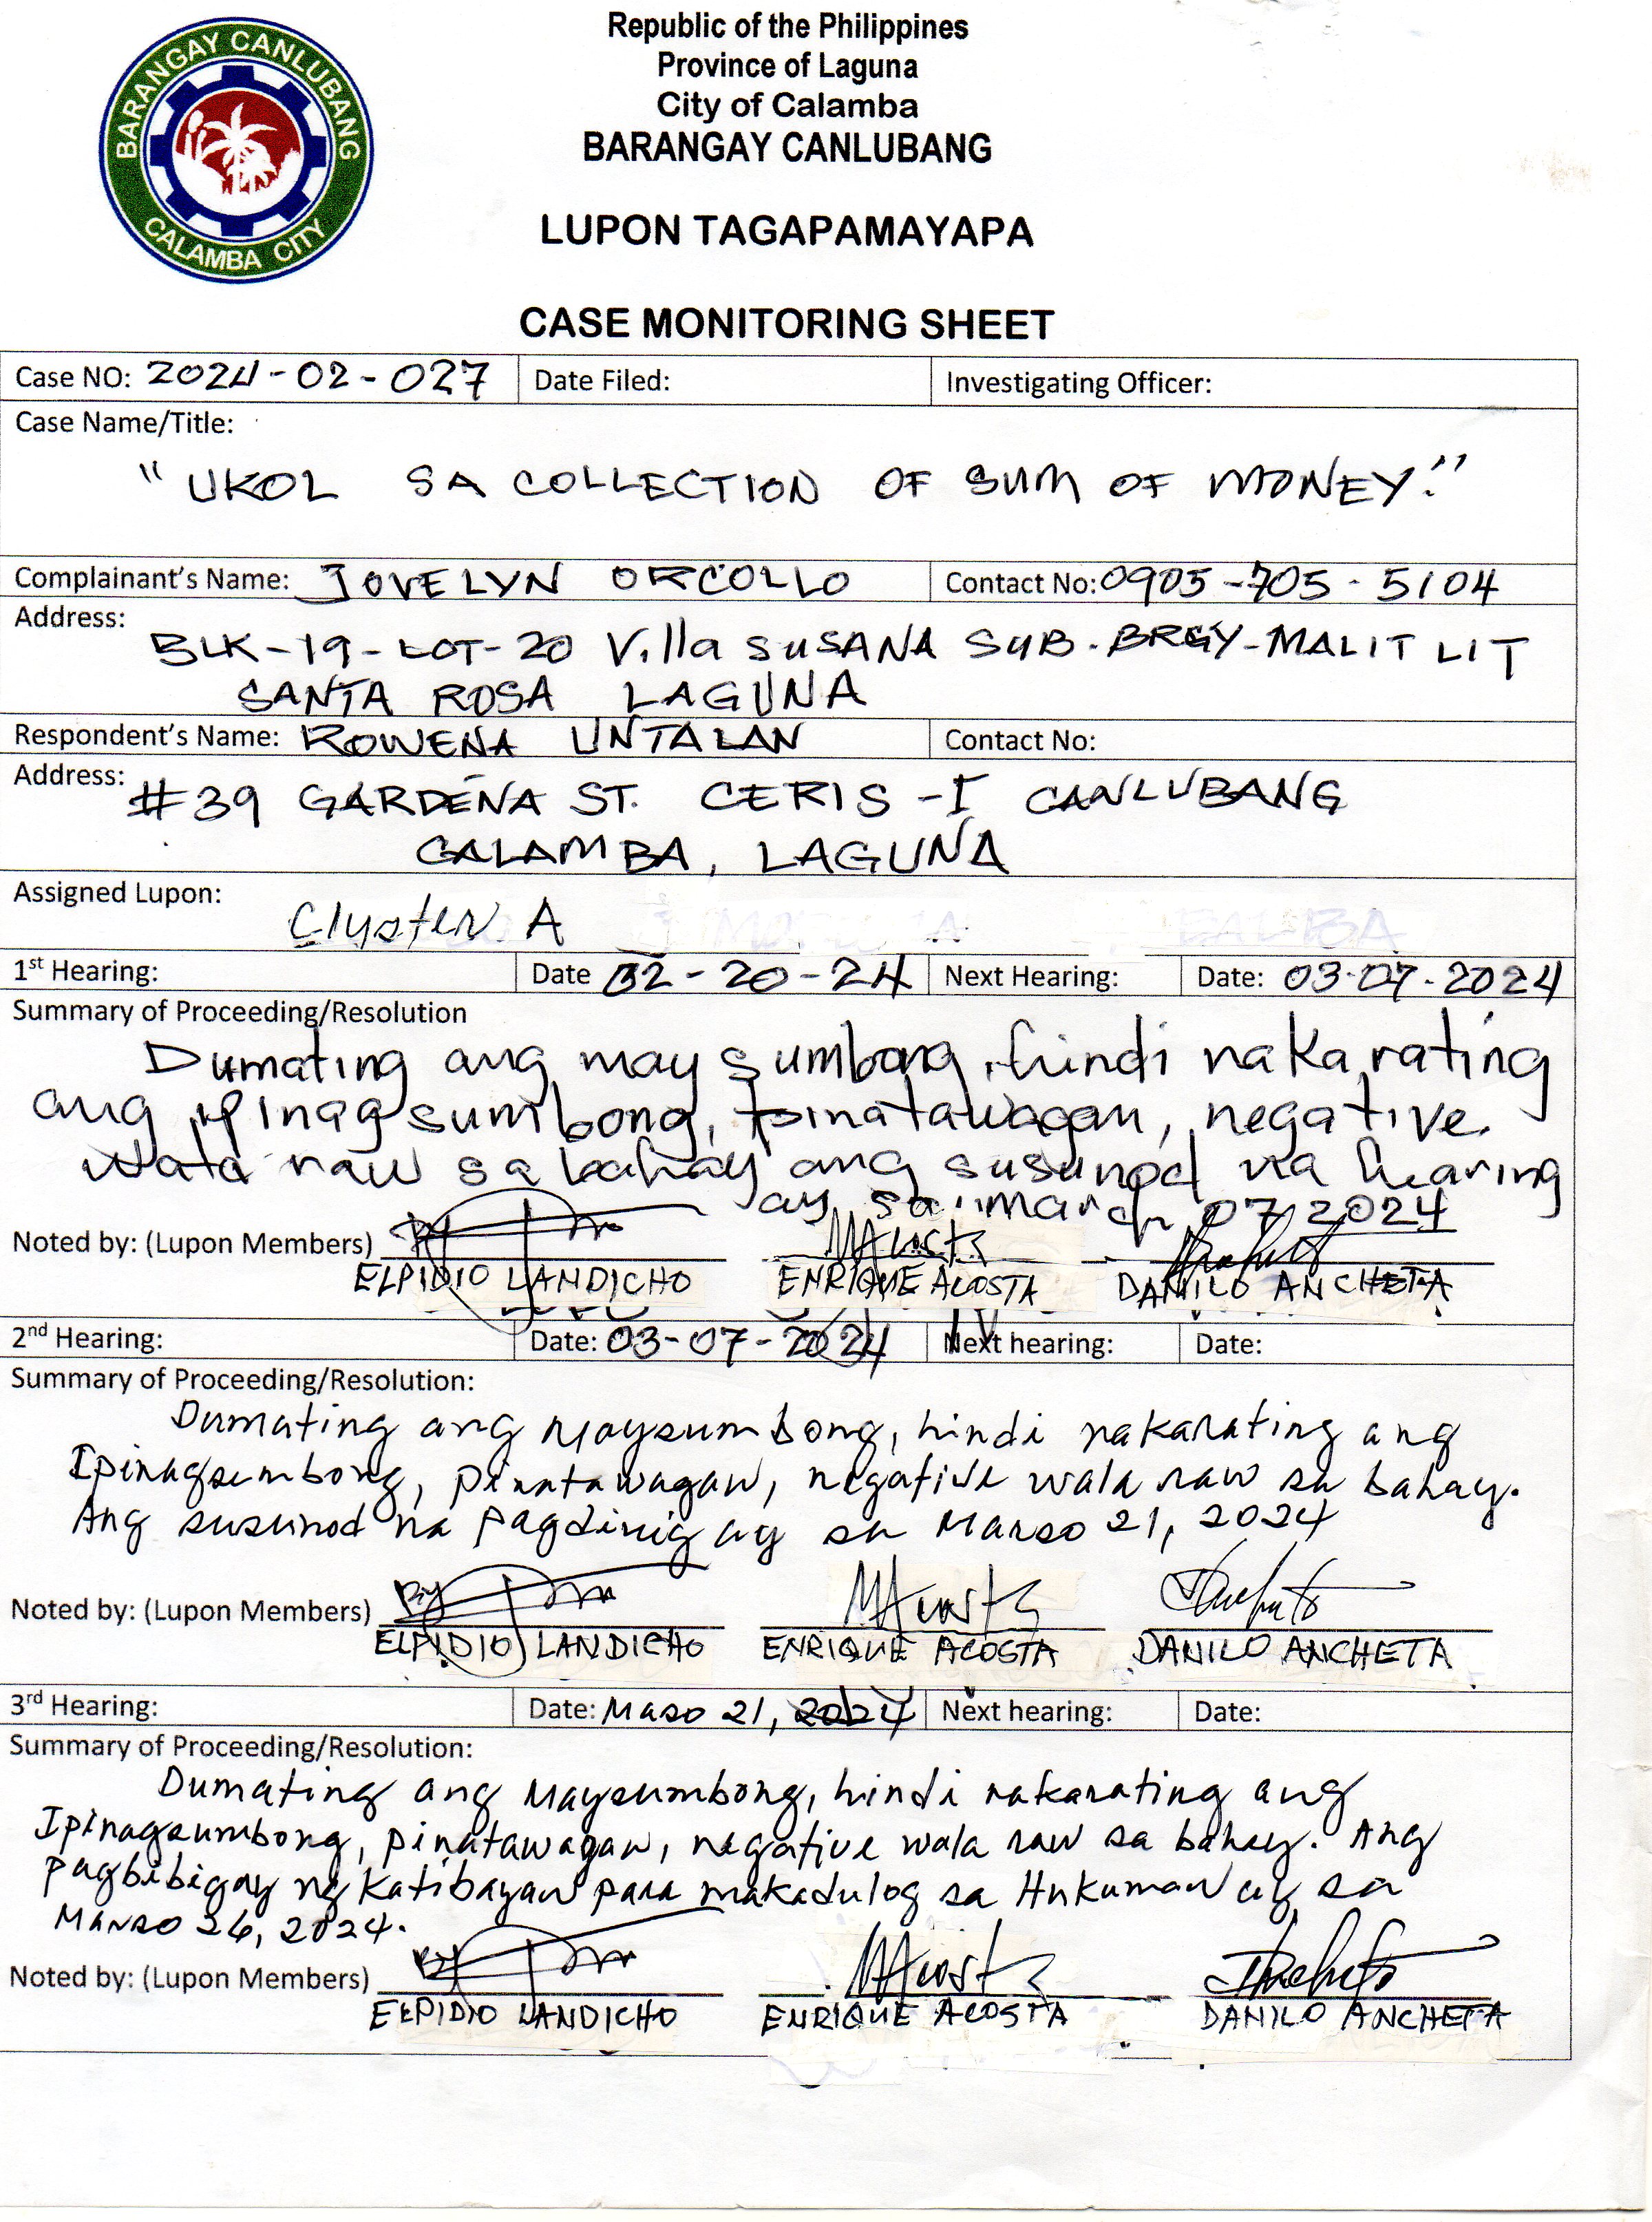 BARANGAY CANLUBANG
CALAMBA CITY
Republic of the Philippines
Province of Laguna
City of Calamba
BARANGAY CANLUBANG
LUPON TAGAPAMAYAPA
CASE MONITORING SHEET
Case NO: 2024-02-027 Date Filed: Investigating Officer:
Case Name/Title:
"UKOL SA COLLECTION OF SUM OF MONEY."
Complainant's Name: JOVELYN ORCOLLO Contact No: 0905-705-5104
Address:
BLK-19-LOT-20 Villa SUSANA SUB. BRGY-MALITLIT
SANTA ROSA LAGUNA
Respondent's Name: ROWENA UNTALAN Contact No:
Address: #39 GARDENA ST. CERIS-I CANLUBANG
CALAMBA, LAGUNA
Assigned Lupon:
Cluster A
1st Hearing: Date 02-20-24 Next Hearing: Date: 03-07-2024
Summary of Proceeding/Resolution
Dumating ang may sumbong, hindi nakarating
ang ipinagsumbong, pinatawagan, negative
wala raw sa bahay ang susunod na hearing
ay sa march 07 2024
Noted by: (Lupon Members)
ELPIDIO LANDICHO ENRIQUE ACOSTA DANILO ANCHETA
2nd Hearing: Date: 03-07-2024 Next hearing: Date:
Summary of Proceeding/Resolution:
Dumating ang Maysumbong, hindi nakarating ang
Ipinagsumbong, pinatawagan, negative wala raw sa bahay.
Ang susunod na pagdinig ay sa Marso 21, 2024
Noted by: (Lupon Members)
ELPIDIO LANDICHO ENRIQUE ACOSTA DANILO ANCHETA
3rd Hearing: Date: Maso 21, 2024 Next hearing: Date:
Summary of Proceeding/Resolution:
Dumating ang Maysumbong, hindi nakarating ang
Ipinagsumbong, pinatawagan, negative wala raw sa bahay. Ang
pagbibigay ng katibayan para makadulog sa Hukuman ay sa
Marso 26, 2024.
Noted by: (Lupon Members)
ELPIDIO LANDICHO ENRIQUE ACOSTA DANILO ANCHETA